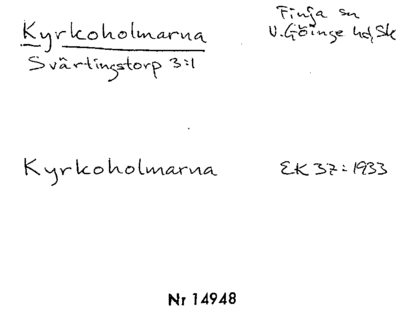 Kyrkoholmarna
Svärtingstorp 3:1
Finja sn
V. Göinge hd, Sk
Kyrkoholmarna
EK 37:1933
Nr 14948